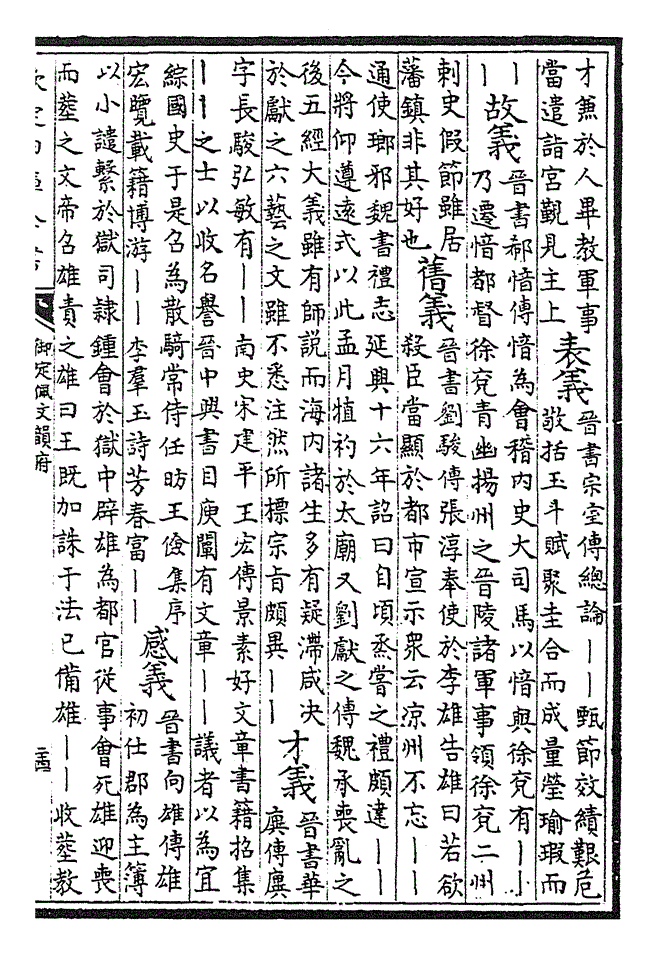 才兼於人畢教軍事
當遣詣宮覲見主上
表義
晉書宗室傳總論丨丨甄節效績艱危
敬括玉斗賦聚圭合而成量瑩瑜瑕而
丨
丨
故義
晉書郗愔傳愔為會稽内史大司馬以愔與徐兗有丨丨
乃遷愔都督徐兗青幽揚州之晉陵諸軍事領徐兗二州
刺史假節雖居
藩鎮非其好也
舊義
晉書劉駿傳張淳奉使於李雄告雄曰若欲
殺臣當顯於都市宣示衆云涼州不忘丨丨
通使瑯邪魏書禮志延興十六年詔曰自頃烝嘗之禮頗違丨丨
今將仰遵遠式以此孟月犆礿於太廟又劉獻之傳魏承喪亂之
後五經大義雖有師說而海内諸生多有疑滯咸决
於獻之六藝之文雖不悉注然所標宗旨頗異丨丨
才義
晉書華
廙傳廙
字長駿弘敏有丨丨南史宋建平王宏傳景素好文章書籍招集
丨丨之士以收名譽晉中興書目庾闡有文章丨丨議者以為宜
綜國史于是召為散騎常侍任昉王儉集序
宏覽載籍博游丨丨李羣玉詩芳春富丨丨
感義
晉書向雄傳雄
初仕郡為主簿
以小譴繫於獄司隷鍾會於獄中辟雄為都官從事會死雄迎喪
而葬之文帝召雄責之雄曰王既加誅于法已備雄丨丨收葬教
欽定四庫全書
御定佩文韻府